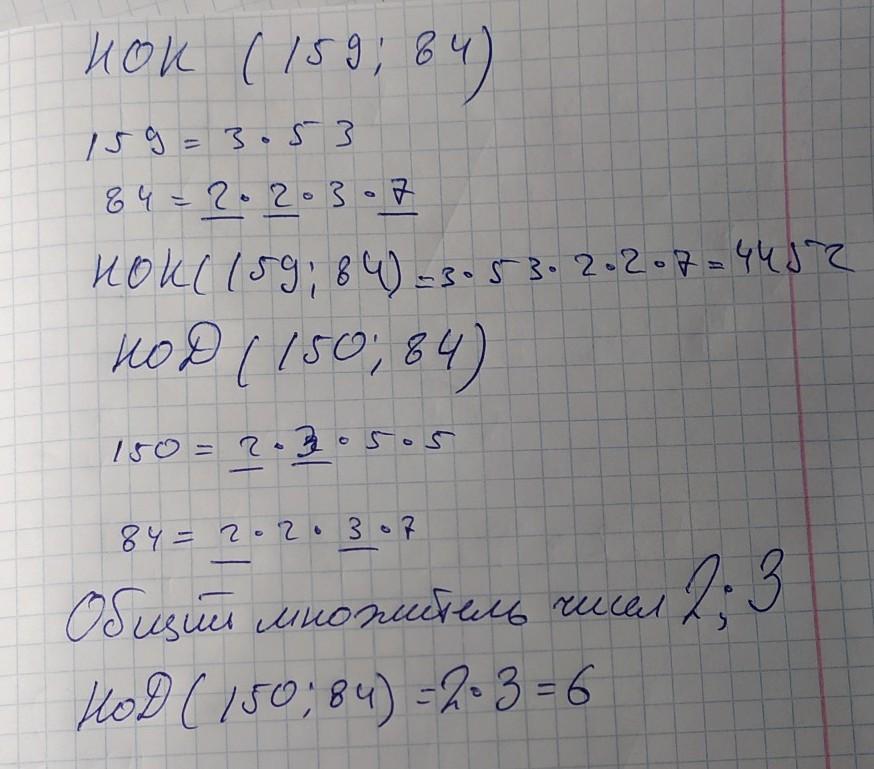 НОК (159; 84)
159 = 3 · 53
84 = 2 · 2 · 3 · 7
НОК(159; 84) = 3 · 53 · 2 · 2 · 7 = 4452
НоД (150; 84)
150 = 2 · 3 · 5 · 5
84 = 2 · 2 · 3 · 7
Общий множитель чисел 2; 3
НоД (150; 84) = 2 · 3 = 6